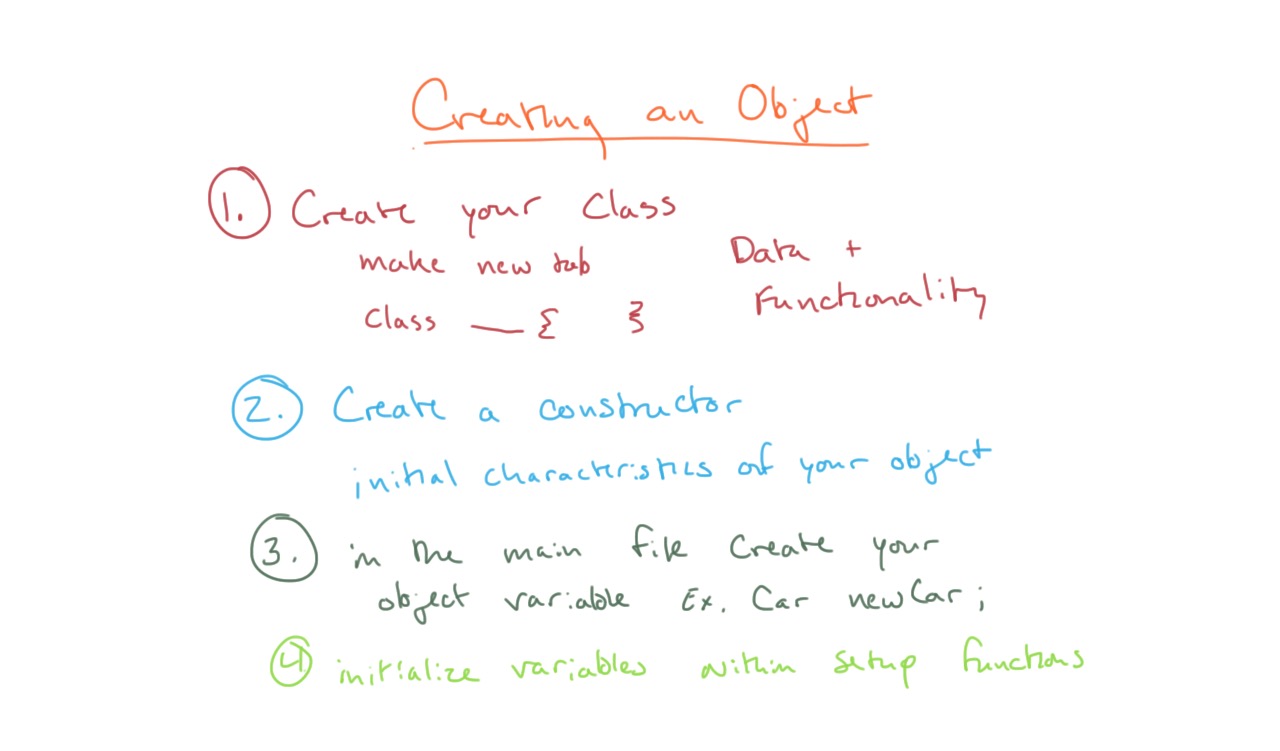 Creating an Object
1. Create your Class
make new tab
Data +
Functionality
class __ { }
2. Create a constructor
initial characteristics of your object
3. in the main file create your
object variable Ex. Car newCar;
4 initialize variables within setup functions